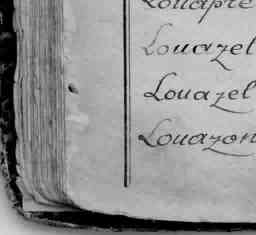 Louapre
Louazel
Louazel
Louazon